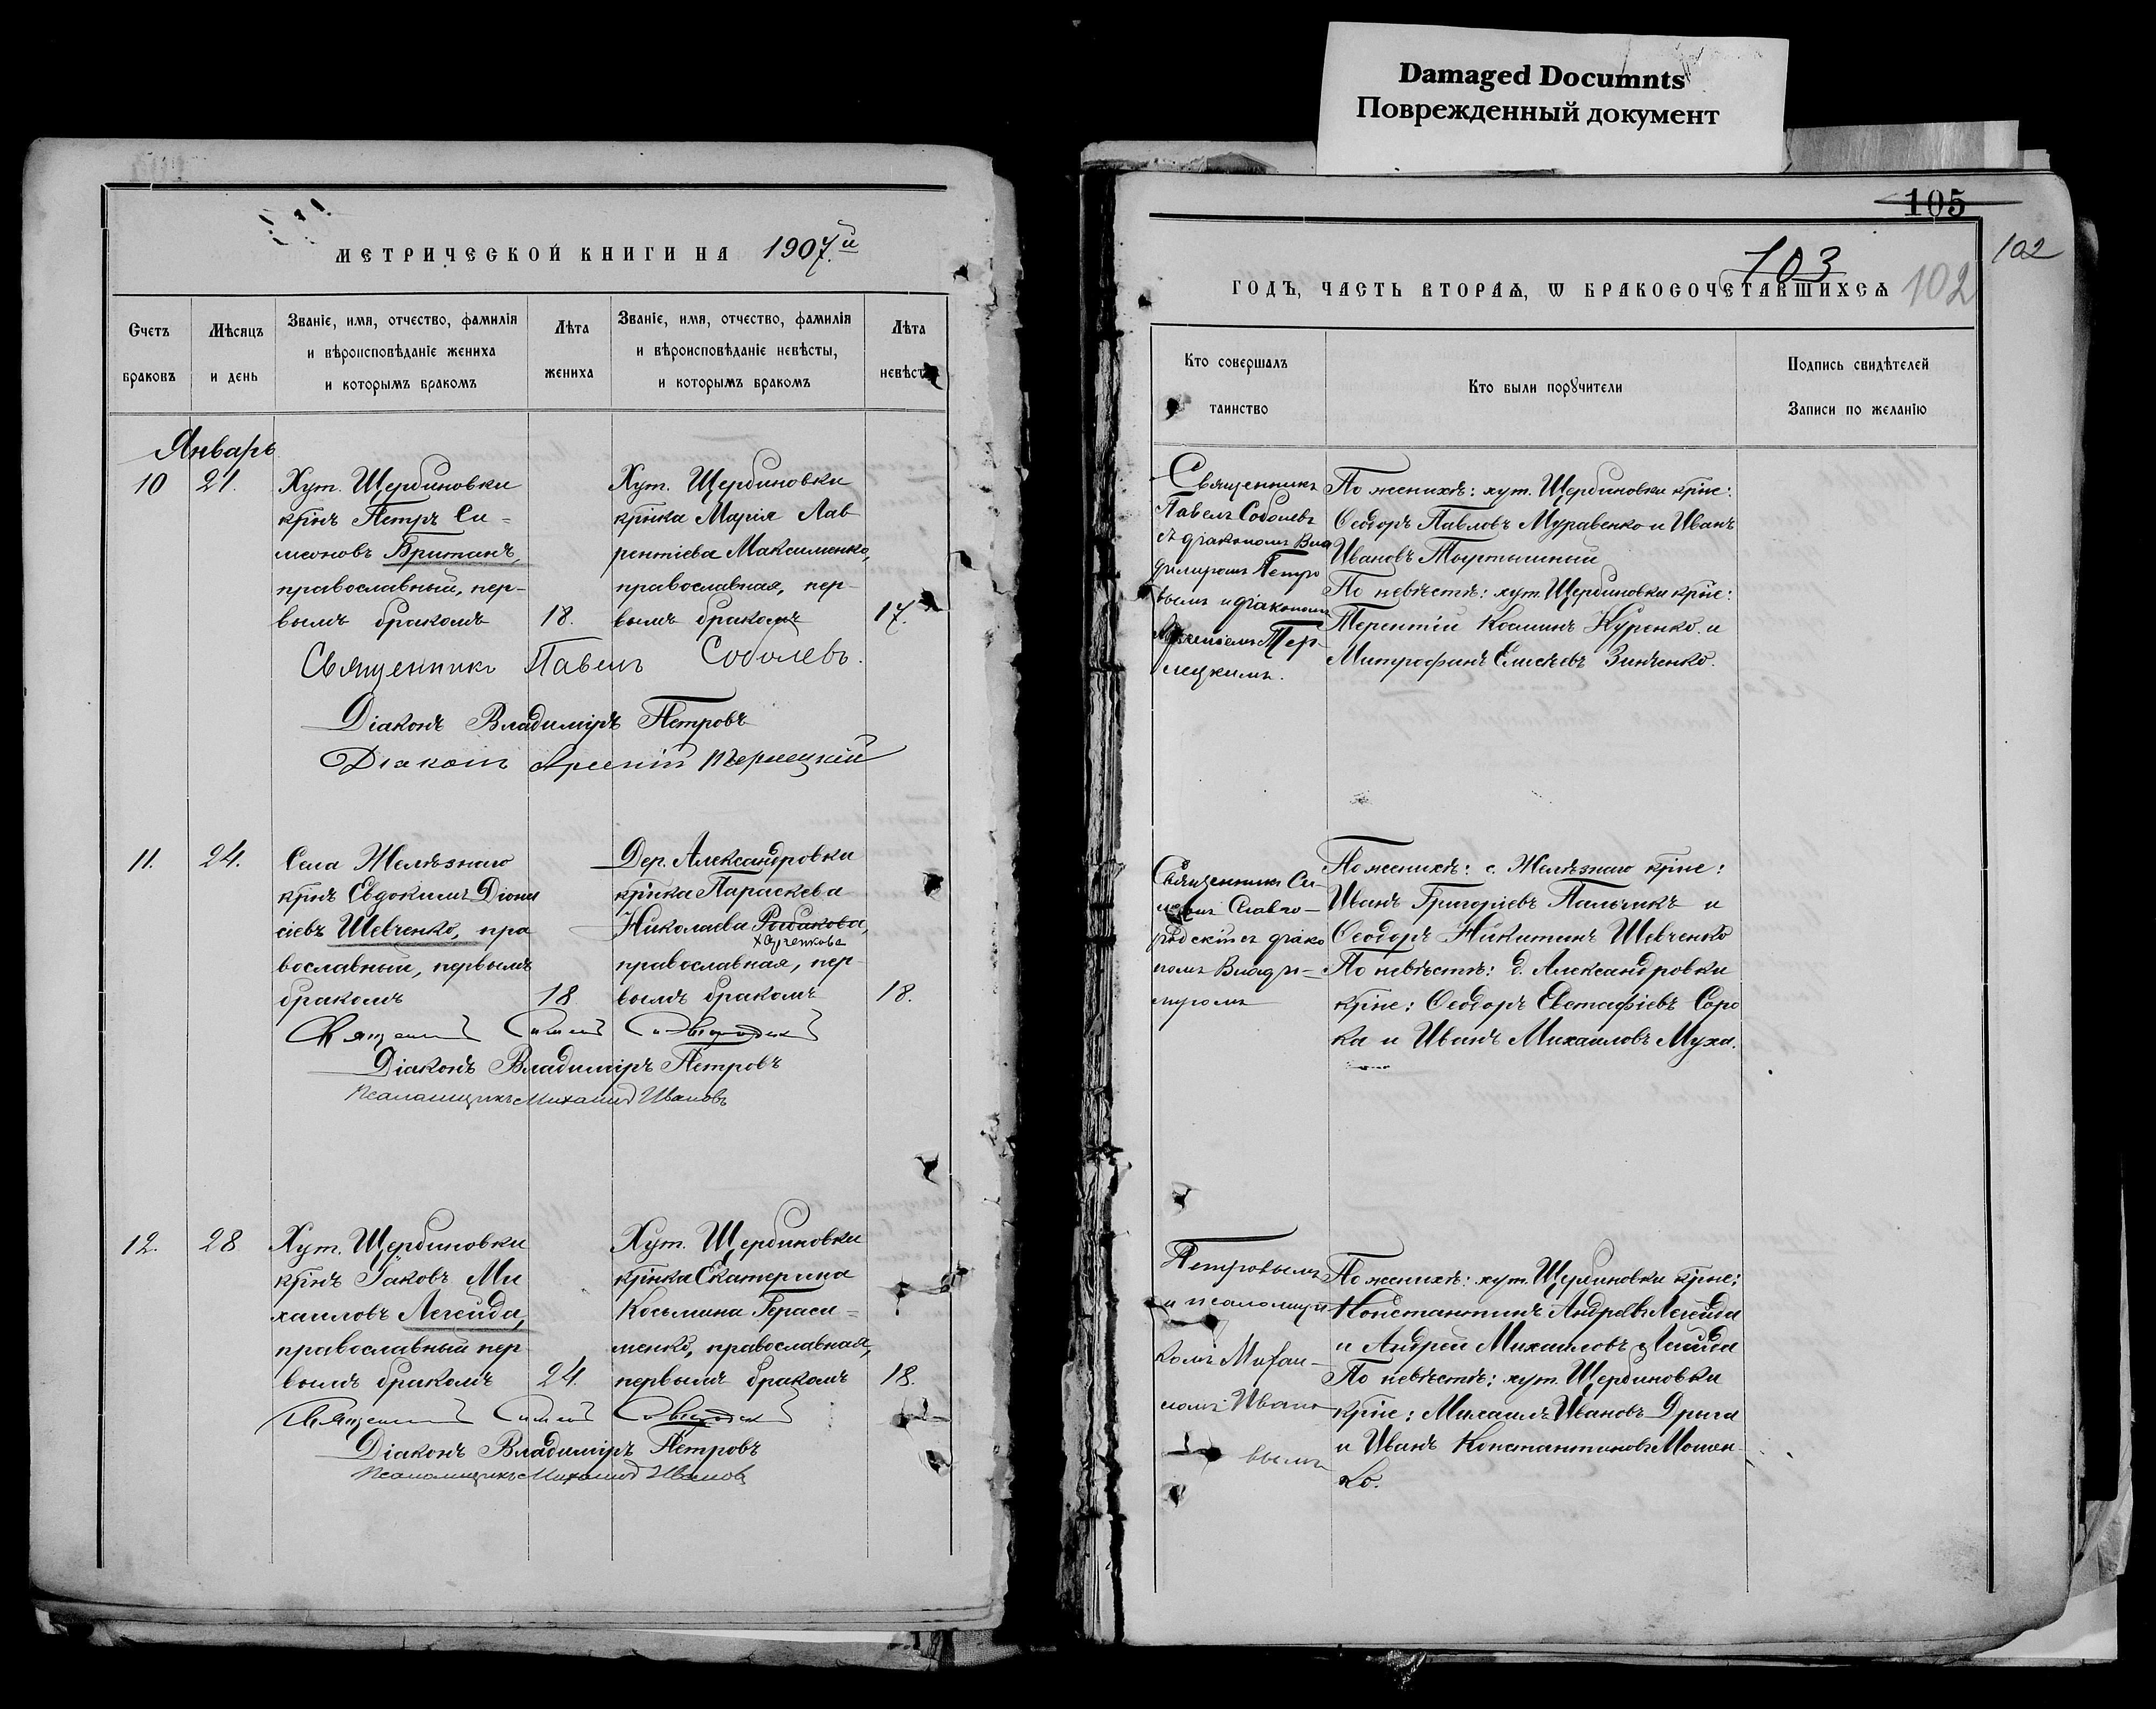 Damaged Documnts
Поврежденный документ
МЕТРИЧЕСКОЙ КНИГИ НА 1907.й
Счетъ браковъ
Мѣсяцъ и день
Званіе, имя, отчество, фамилія и вѣроисповѣданіе жениха и которымъ бракомъ
Лѣта жениха
Званіе, имя, отчество, фамилія и вѣроисповѣданіе невѣсты, и которымъ бракомъ
Лѣта невѣсты
Январь
10 21.
Хут. Щербиновки
крнъ Петръ Си-
меоновъ Британъ,
православный, пер-
вымъ бракомъ 18.
Хут. Щербиновки
крнка Марія Лав
рентіева Максименко,
православная, пер-
вымъ бракомъ 17.
Священникъ Павелъ Соболевъ.
Діаконъ Владиміръ Петровъ
Діаконъ Арсеній Терлецкій
11. 24.
Села Желѣзнаго
крнъ Евдокимъ Діони
сіевъ Шевченко, пра
вославный, первымъ
бракомъ 18
Дер. Александровки
крнка Параскева
Николаева Рыбакова,
православная, пер-
вымъ бракомъ 18.
Діаконъ Владиміръ Петровъ
Псаломщикъ Михаилъ Ивановъ
12. 28
Хут. Щербиновки
крнъ Іаковъ Ми
хаиловъ Легейда,
православный пер
вымъ бракомъ 24.
Хут. Щербиновки
крнка Екатерина
Косьмина Гераси-
менко, православная,
первымъ бракомъ 18.
Діаконъ Владиміръ Петровъ
Псаломщикъ Михаилъ Ивановъ
105
102
103
102
ГОДЪ, ЧАСТЬ ВТОРАѦ, Ѡ БРАКОСОЧЕТАВШИХСѦ
Кто совершалъ таинство
Кто были порꙋчители
Подпись свидѣтелей Записи по желанію
Священникъ
Павелъ Соболевъ
съ діакономъ Вла
диміромъ Петро
вымъ и діакономъ
Арсеніемъ Тер
лецкимъ.
По женихѣ: хут. Щербиновки крне:
Ѳеодоръ Павловъ Муравенко и Иванъ
Ивановъ
По невѣстѣ: хут. Щербиновки крне:
Терентій Косминъ Куренко и
Митрофанъ Елисѣевъ Зинченко.
Священникъ Си-
Славго-
родскій съ діако
номъ Влади-
міромъ
По женихѣ: с. Желѣзнаго крне:
Иванъ Григоріевъ Пальчикъ и
Ѳеодоръ Никитинъ Шевченко
По невѣстѣ: д. Александровки
крне: Ѳеодоръ Евстафіевъ Соро
ка и Иванъ Михаиловъ Муха.
Петровымъ
и псаломщи
комъ Михаи-
ломъ Ивано
вымъ
По женихѣ: хут. Щербиновки крне:
Константинъ Андреевъ Легейда
и Андрей Михаиловъ Легейда
По невѣстѣ: хут. Щербиновки
крне: Михаилъ Ивановъ Дрыга
и Иванъ Константиновъ Мошен-
ко.